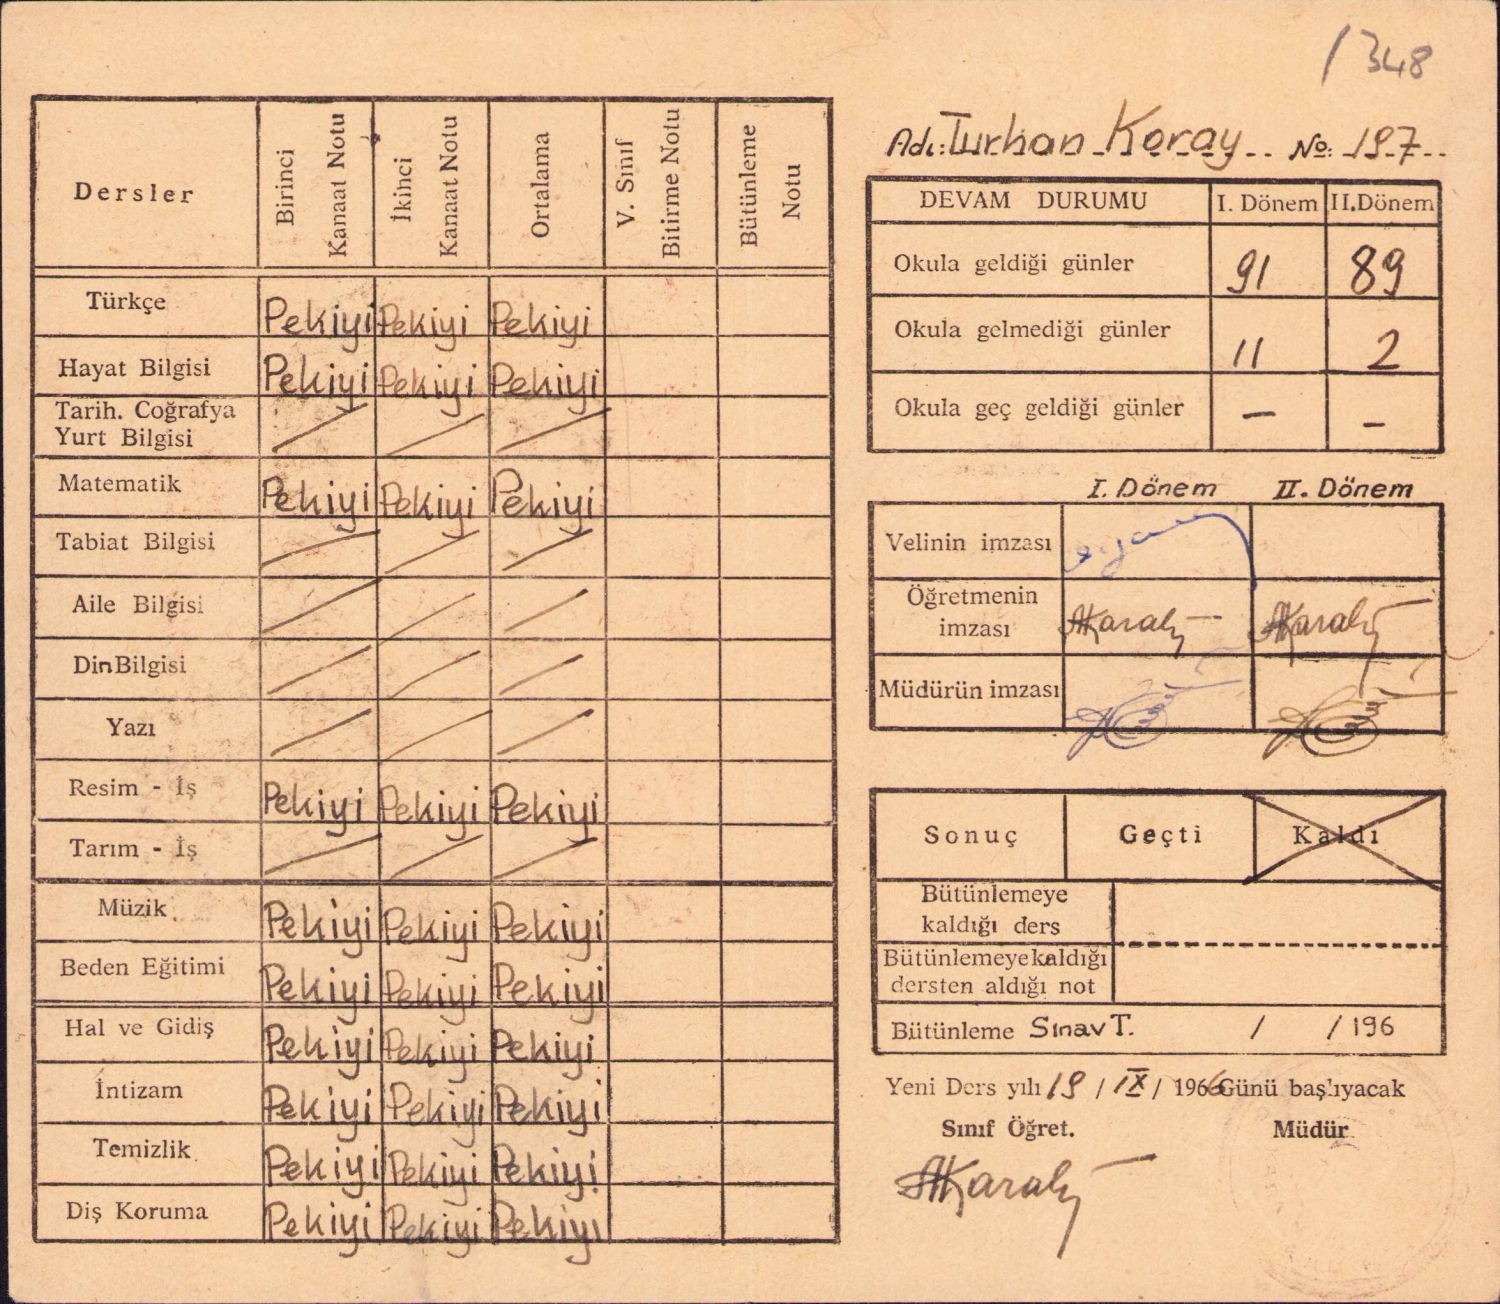 1348
Adı: Turhan Koray No: 197
Dersler
Birinci Kanaat Notu
İkinci Kanaat Notu
Ortalama
V. Sınıf Bitirme Notu
Bütünleme Notu
Türkçe Pekiyi Pekiyi Pekiyi
Hayat Bilgisi Pekiyi Pekiyi Pekiyi
Tarih. Coğrafya
Yurt Bilgisi
Matematik Pekiyi Pekiyi Pekiyi
Tabiat Bilgisi
Aile Bilgisi
Din Bilgisi
Yazı
Resim - İş Pekiyi Pekiyi Pekiyi
Tarım - İş
Müzik Pekiyi Pekiyi Pekiyi
Beden Eğitimi Pekiyi Pekiyi Pekiyi
Hal ve Gidiş Pekiyi Pekiyi Pekiyi
İntizam Pekiyi Pekiyi Pekiyi
Temizlik Pekiyi Pekiyi Pekiyi
Diş Koruma Pekiyi Pekiyi Pekiyi
DEVAM DURUMU I. Dönem II. Dönem
Okula geldiği günler 91 89
Okula gelmediği günler 11 2
Okula geç geldiği günler — –
I. Dönem II. Dönem
Velinin imzası
Öğretmenin
imzası AKaralı AKaralı
Müdürün imzası
Sonuç Geçti Kaldı
Bütünlemeye
kaldığı ders
Bütünlemeye kaldığı
dersten aldığı not
Bütünleme Sınav T. / / 196
Yeni Ders yılı 19 / IX / 1966 Günü başlıyacak
Sınıf Öğret. Müdür
AKaralı